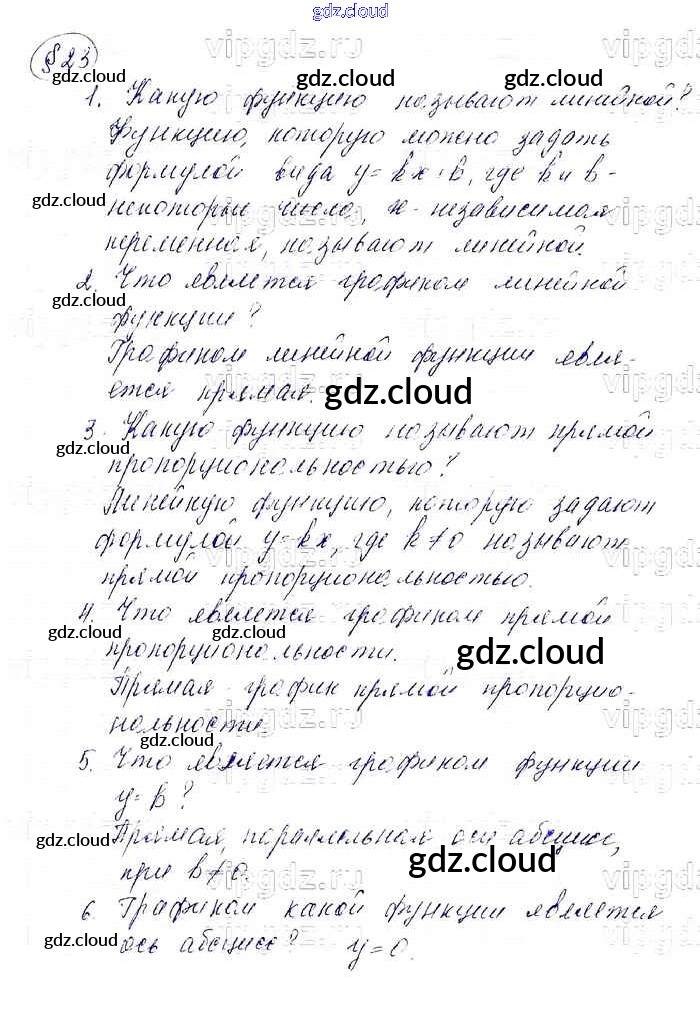 gdz.cloud
§ 23
1. Какую функцию называют линейной?
Функцию, которую можно задать
формулой вида y = kx + b, где k и b -
некоторые числа, x - независимая
переменная, называют линейной.
2. Что является графиком линейной
функции?
Графиком линейной функции явля-
ется прямая.
3. Какую функцию называют прямой
пропорциональностью?
Линейную функцию, которую задают
формулой y = kx, где k ≠ 0 называют
прямой пропорциональностью.
4. Что является графиком прямой
пропорциональности.
Прямая - график прямой пропорцио-
нальности.
5. Что является графиком функции
y = b?
Прямая, параллельная оси абсцисс,
при b ≠ 0.
6. Графиком какой функции является
ось абсцисс? y = 0.
vipgdz.ru
vipgdz.ru
gdz.cloud
gdz.cloud
gdz.cloud
gdz.cloud
gdz.cloud
gdz.cloud
gdz.cloud
gdz.cloud
gdz.cloud
gdz.cloud
gdz.cloud
gdz.cloud
gdz.cloud
gdz.cloud